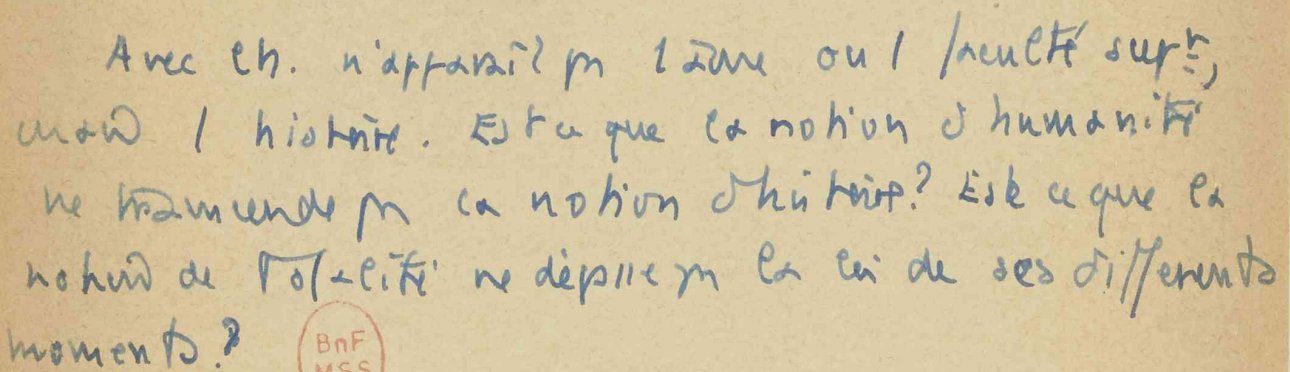 Avec Ch. n'apparaît pas l'âme ou l faculté supr,
mais l histoire. Est ce que la notion d'humanité
ne transcende pas la notion d'histoire? Est ce que la
notion de Totalité ne dépasse pas la loi de ses différents
moments?
BnF
MSS